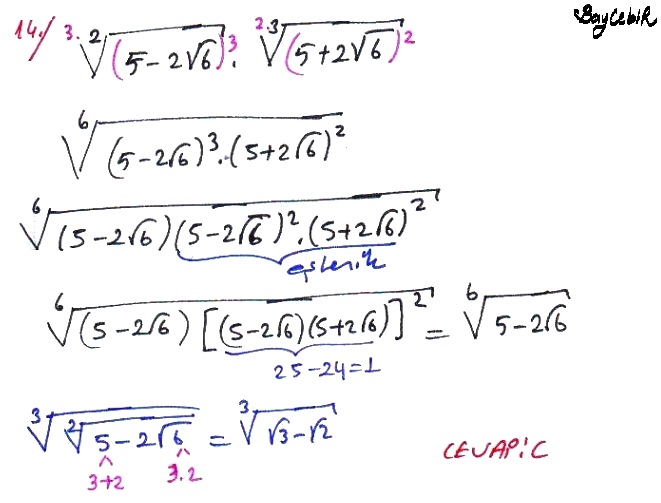 BayCebiR
14./ 3.2√(5-2√6)^3 . 2.3√(5+2√6)^2
6√(5-2√6)^3.(5+2√6)^2
6√(5-2√6)(5-2√6)^2.(5+2√6)^2
eşlenik
6√(5-2√6)[(5-2√6)(5+2√6)]^2 = 6√5-2√6
25-24=1
3√2√5-2√6 = 3√√3-√2
3+2 3.2
CEVAP:C